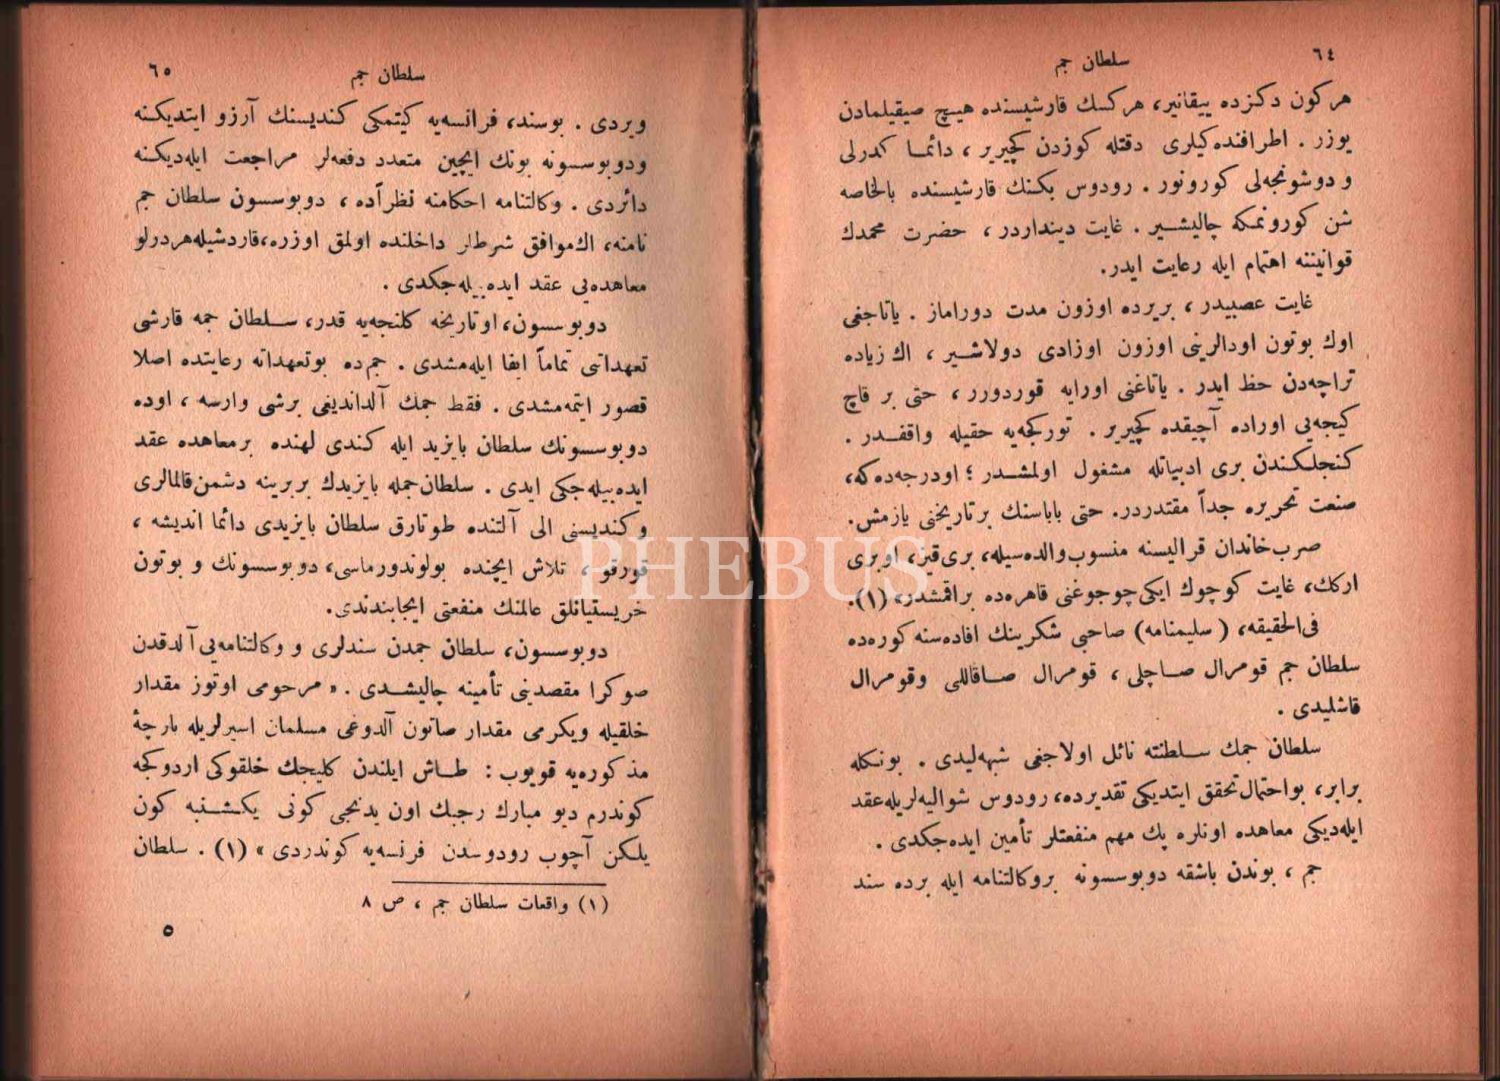 ٦٤
سلطان جم
هركون دكزده ييقانير، هركسك قارشيسنده هيچ صيقيلمادن
يوزر . اطرافنده‌كيلرى دقتله كوزدن كچيرير ، دائما كدرلى
و دوشونجه‌لى كورونور . رودوس بكنك قارشيسنده بالخاصه
شن كورونمكه چاليشير . غايت دينداردر ، حضرت محمدك
قوانيننه اهتمام ايله رعايت ايدر.
غايت عصبيدر ، بريرده اوزون مدت دوراماز . ياتاجغى
اوك بوتون اودالرينى اوزون اوزادى دولاشير ، اك زياده
تراچه‌دن حظ ايدر . ياتاغنى اورايه قوردورر ، حتى بر قاچ
كيجه‌يى اوراده آچيقده كچيرير . توركجه‌يه حقيله واقفدر .
كنجلكندن برى ادبياتله مشغول اولمشدر ؛ اودرجه‌ده‌كه،
صنعت تحريره جداً مقتدردر. حتى باباسنك برتاريخنى يازمش.
صرب‌خاندان قراليسنه منسوب والده‌سيله، برى‌قيز، اوبرى
اركك، غايت كوچوك ايكى‌چوجوغنى قاهره‌ده براقمشدر» (١).
فى‌الحقيقه، (سليمنامه) صاحبى شكرينك افاده‌سنه كوره‌ده
سلطان جم قومرال صاچلى ، قومرال صاقاللى وقومرال
قاشليدى .
سلطان جمك سلطنته نائل اولاجغى شبهه‌ليدى . بونكله
برابر، بواحتمال‌تحقق ايتديكى تقديرده، رودوس شواليه‌لريله‌عقد
ايله‌ديكى معاهده اونلره پك مهم منفعتلر تأمين ايده‌جكدى .
جم ، بوندن باشقه دوبوسسونه بروكالتنامه ايله برده سند
سلطان جم
٦٥
ويردى . بوسند، فرانسه‌يه كيتمكى كنديسنك آرزو ايتديكنه
ودوبوسسونه بونك ايچين متعدد دفعه‌لر مراجعت ايله‌ديكنه
دائردى . وكالتنامه احكامنه نظراً‌ده ، دوبوسسون سلطان جم
نامنه، اك‌موافق شرطلر داخلنده اولمق اوزره،قاردشيله‌هردرلو
معاهده‌يى عقد ايده‌بيله‌جكدى .
دوبوسسون، اوتاريخه كلنجه‌يه قدر، سلطان جمه قارشى
تعهداتى تماماً ايفا ايله‌مشدى . جم‌ده بوتعهداته رعايتده اصلا
قصور ايتمه‌مشدى . فقط جمك آلدانديغى برشى وارسه ، اوده
دوبوسسونك سلطان بايزيد ايله كندى لهنده برمعاهده عقد
ايده‌بيله‌جكى ايدى . سلطان‌جمله بايزيدك بربرينه دشمن‌قالمالرى
وكنديسنى الى آلتنده طوتارق سلطان بايزيدى دائما انديشه ،
قورقو ، تلاش ايچنده بولوندورماسى، دوبوسسونك و بوتون
خريستيانلق عالمنك منفعتى ايجابندندى.
دوبوسسون، سلطان جمدن سندلرى و وكالتنامه‌يى آلدقدن
صوكرا مقصدينى تأمينه چاليشدى . « مرحومى اوتوز مقدار
خلقيله ويكرمى مقدار صاتون آلدوغى مسلمان اسيرلريله بارچهٔ
مذكوره‌يه قويوب : طاش ايلندن كليجك خلقوكى اردوكجه
كوندرم ديو مبارك رجبك اون يدنجى كونى يكشنبه كون
يلكن آچوب رودوسدن فرنسه‌يه كوندردى » (١) . سلطان
(١) واقعات سلطان جم ، ص ٨
٥
PHEBUS